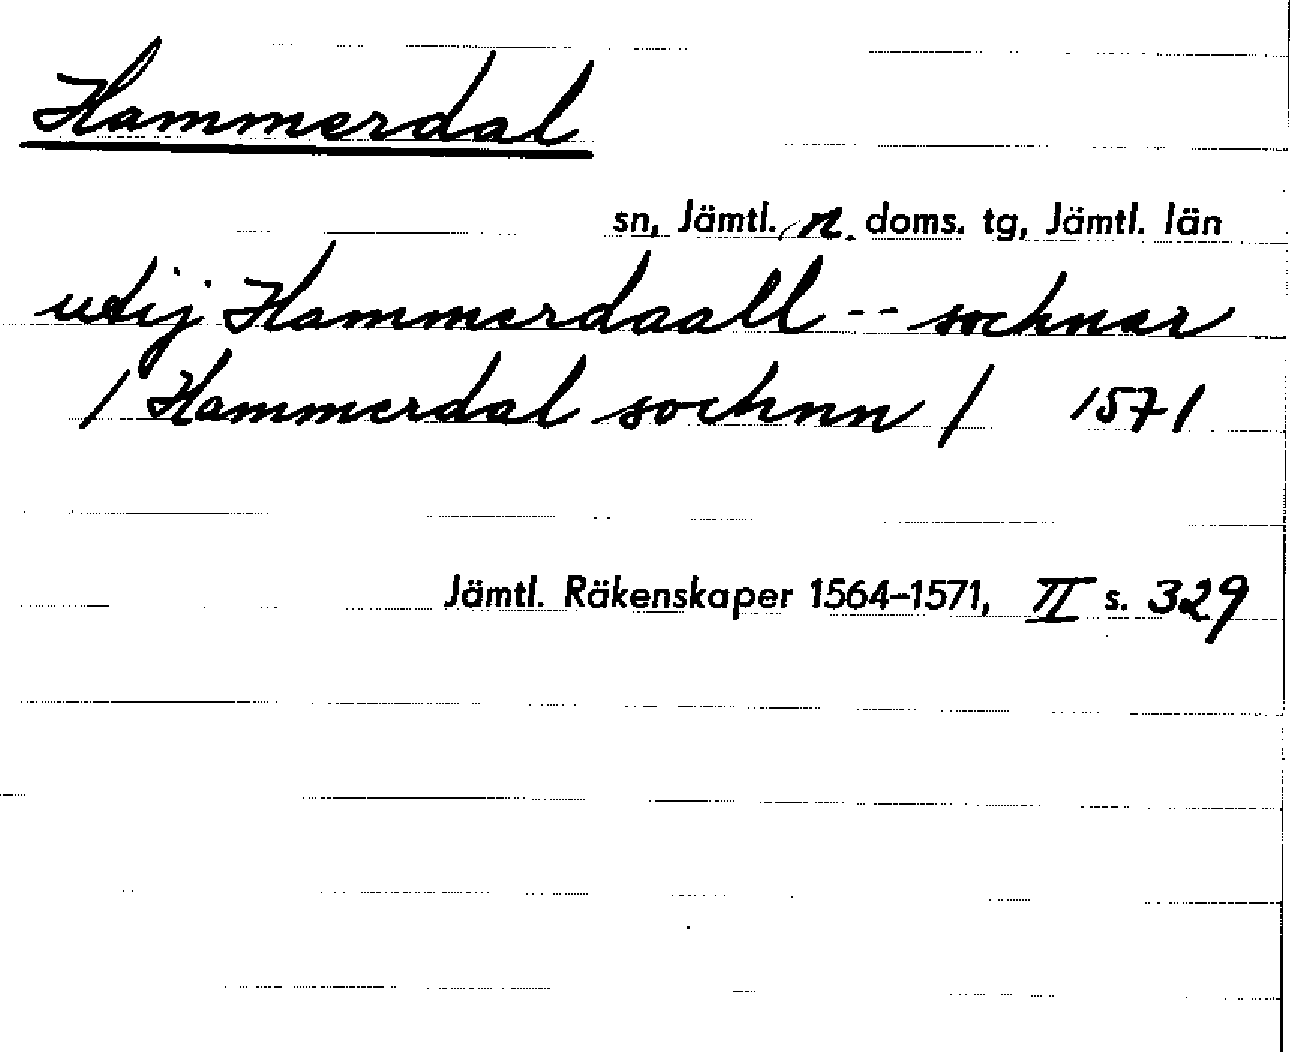 Hammerdal
sn, Jämtl. n. doms. tg, Jämtl. län
utij Hammerdaall -- sochnar
/ Hammerdal sochnn / 1571
Jämtl. Räkenskaper 1564-1571, II s. 329